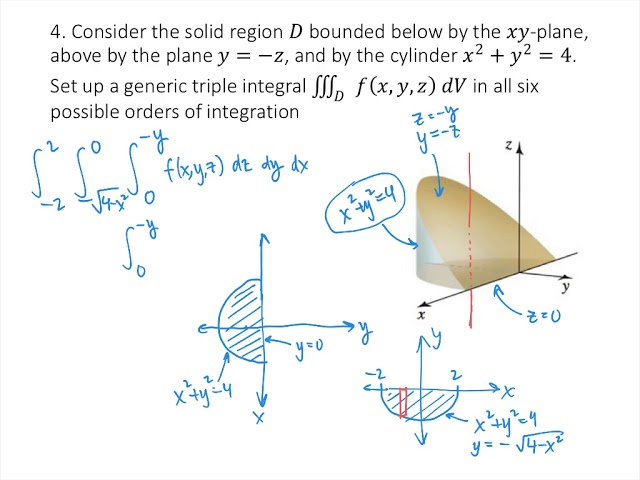 4. Consider the solid region D bounded below by the xy-plane,
above by the plane y = −z, and by the cylinder x² + y² = 4.
Set up a generic triple integral ∭_D f(x, y, z) dV in all six
possible orders of integration
∫_{-2}^{2} ∫_{-√(4-x²)}^{0} ∫_{0}^{-y} f(x,y,z) dz dy dx
∫_{0}^{-y}
z=-y
y=-z
x²+y²=4
z
y
x
z=0
y
y=0
x²+y²=4
x
y
-2
2
x
x²+y²=4
y = -√(4-x²)